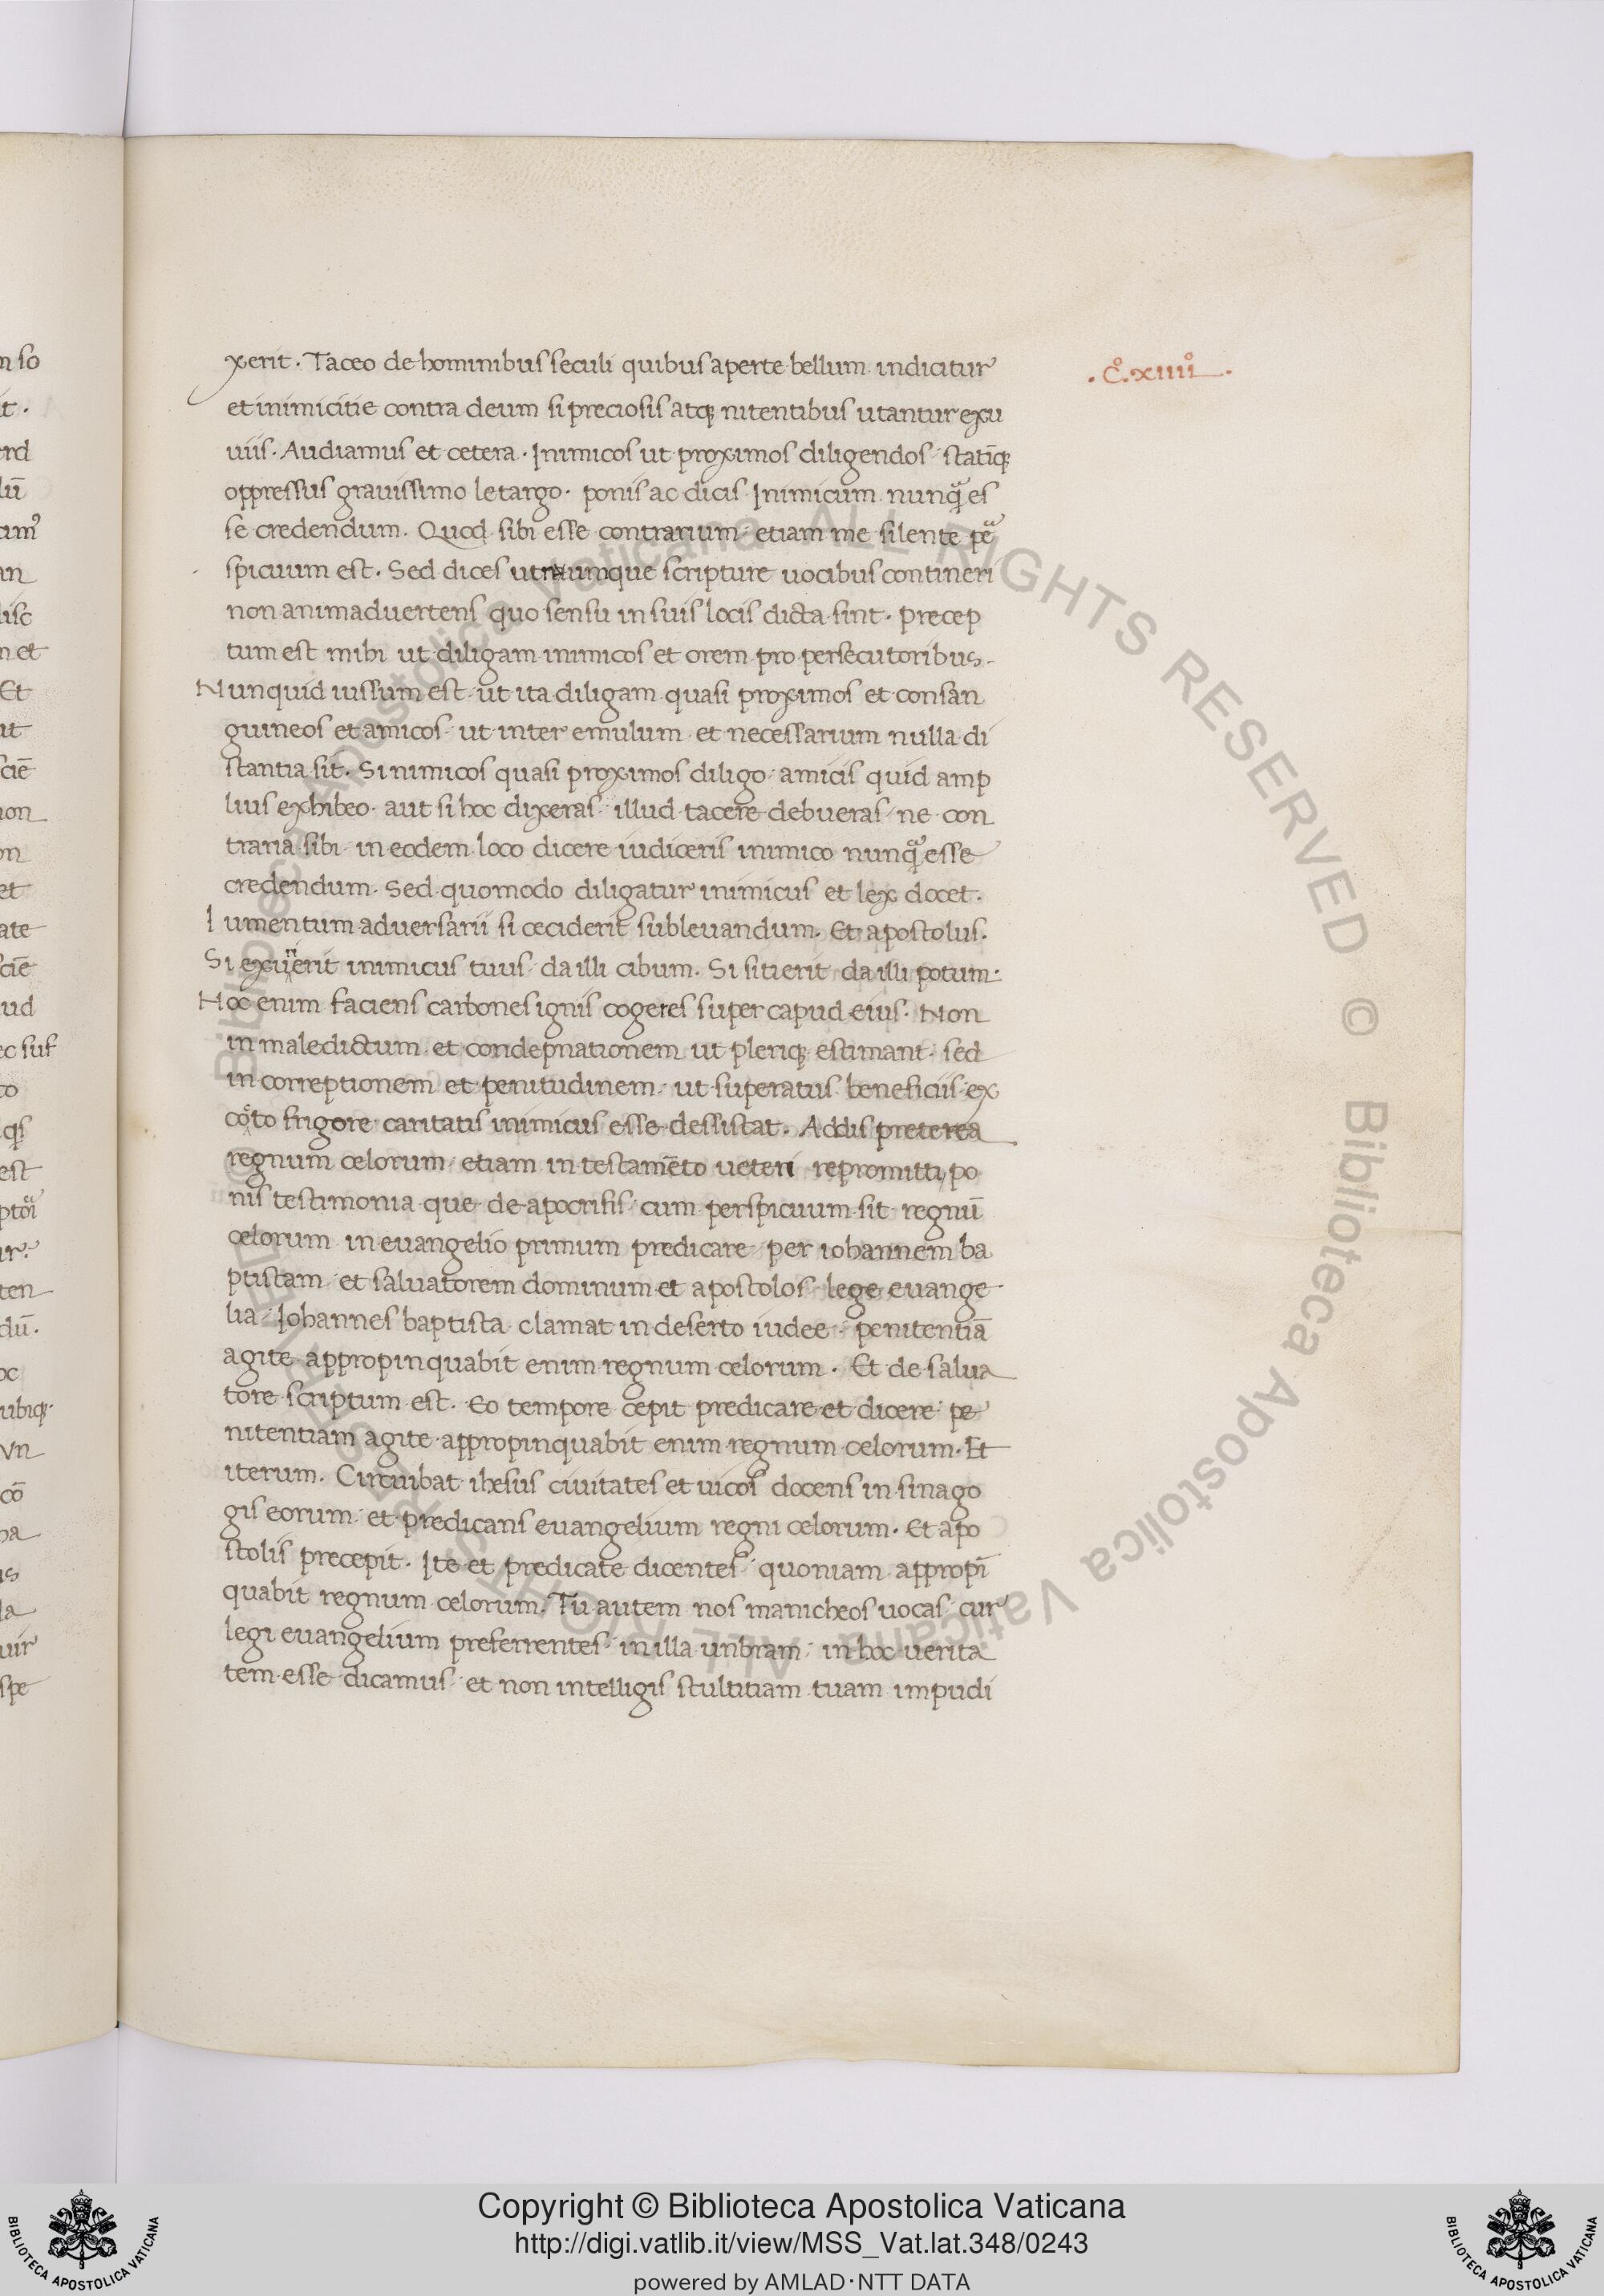 xerit. Taceo de hominibus seculi quibus aperte bellum indicitur
et inimicitie contra deum si preciosis atq; nitentibus utantur exu
uiis. Audiamus et cetera. Inimicos ut proximos diligendos statīq;
oppressus grauissimo letargo. ponis ac dicis Inimicum nunq̃ es
se credendum. Quod sibi esse contrarium etiam me silente pe
spicuum est. Sed dices utrumque scripture uocibus contineri
non animaduertens quo sensu in suis locis dicta sint. Precep
tum est mihi ut diligam inimicos et orem pro persecutoribus.
Nunquid iussum est ut ita diligam quasi proximos et consan
guineos et amicos ut inter emulum et necessarium nulla di
stantia sit. Si nimicos quasi proximos diligo amicis quid amp
lius exhibeo. aut si hoc dixeras illud tacere debueras ne con
traria sibi in eodem loco dicere iudiceris inimico nunq̃ esse
credendum. Sed quomodo diligatur inimicus et lex docet.
Iumentum aduersarii si ceciderit subleuandum. Et apostolus.
Si inimicus tuus da illi cibum. Si sitierit da illi potum.
Hoc enim faciens carbones ignis cogeres super capud eius. Non
in maledictum et condepnationem ut pleriq; estimant sed
in correptionem et penitudinem ut superatus beneficiis ex
frigore caritatis inimicus esse dessistat. Addis preterea
regnum celorum etiam in testamēto ueteri repromitti, po
nis testimonia que de apocrifis cum perspicuum sit regnū
celorum in euangelio primum predicare per iohannem ba
ptistam et saluatorem dominum et apostolos lege euange
lia Iohannes baptista clamat in deserto iudee penitentiā
agite appropinquabit enim regnum celorum. Et de salua
tore scriptum est. Eo tempore cepit predicare et dicere pe
nitentiam agite appropinquabit enim regnum celorum. Et
iterum. Circuibat ihesus ciuitates et uicos docens in sinago
gis eorum et predicans euangelium regni celorum. Et apo
stolis precepit. Ite et predicate dicentes quoniam appropī
quabit regnum celorum. Tu autem nos manicheos uocas cur
legi euangelium preferrentes in illa unbram in hoc uerita
tem esse dicamus et non intelligis stultitiam tuam impudi
.c̊.xiiii̊.
Copyright © Biblioteca Apostolica Vaticana
http://digi.vatlib.it/view/MSS_Vat.lat.348/0243
powered by AMLAD·NTT DATA
BIBLIOTECA APOSTOLICA VATICANA
BIBLIOTECA APOSTOLICA VATICANA
© Biblioteca Apostolica Vaticana ALL RIGHTS RESERVED